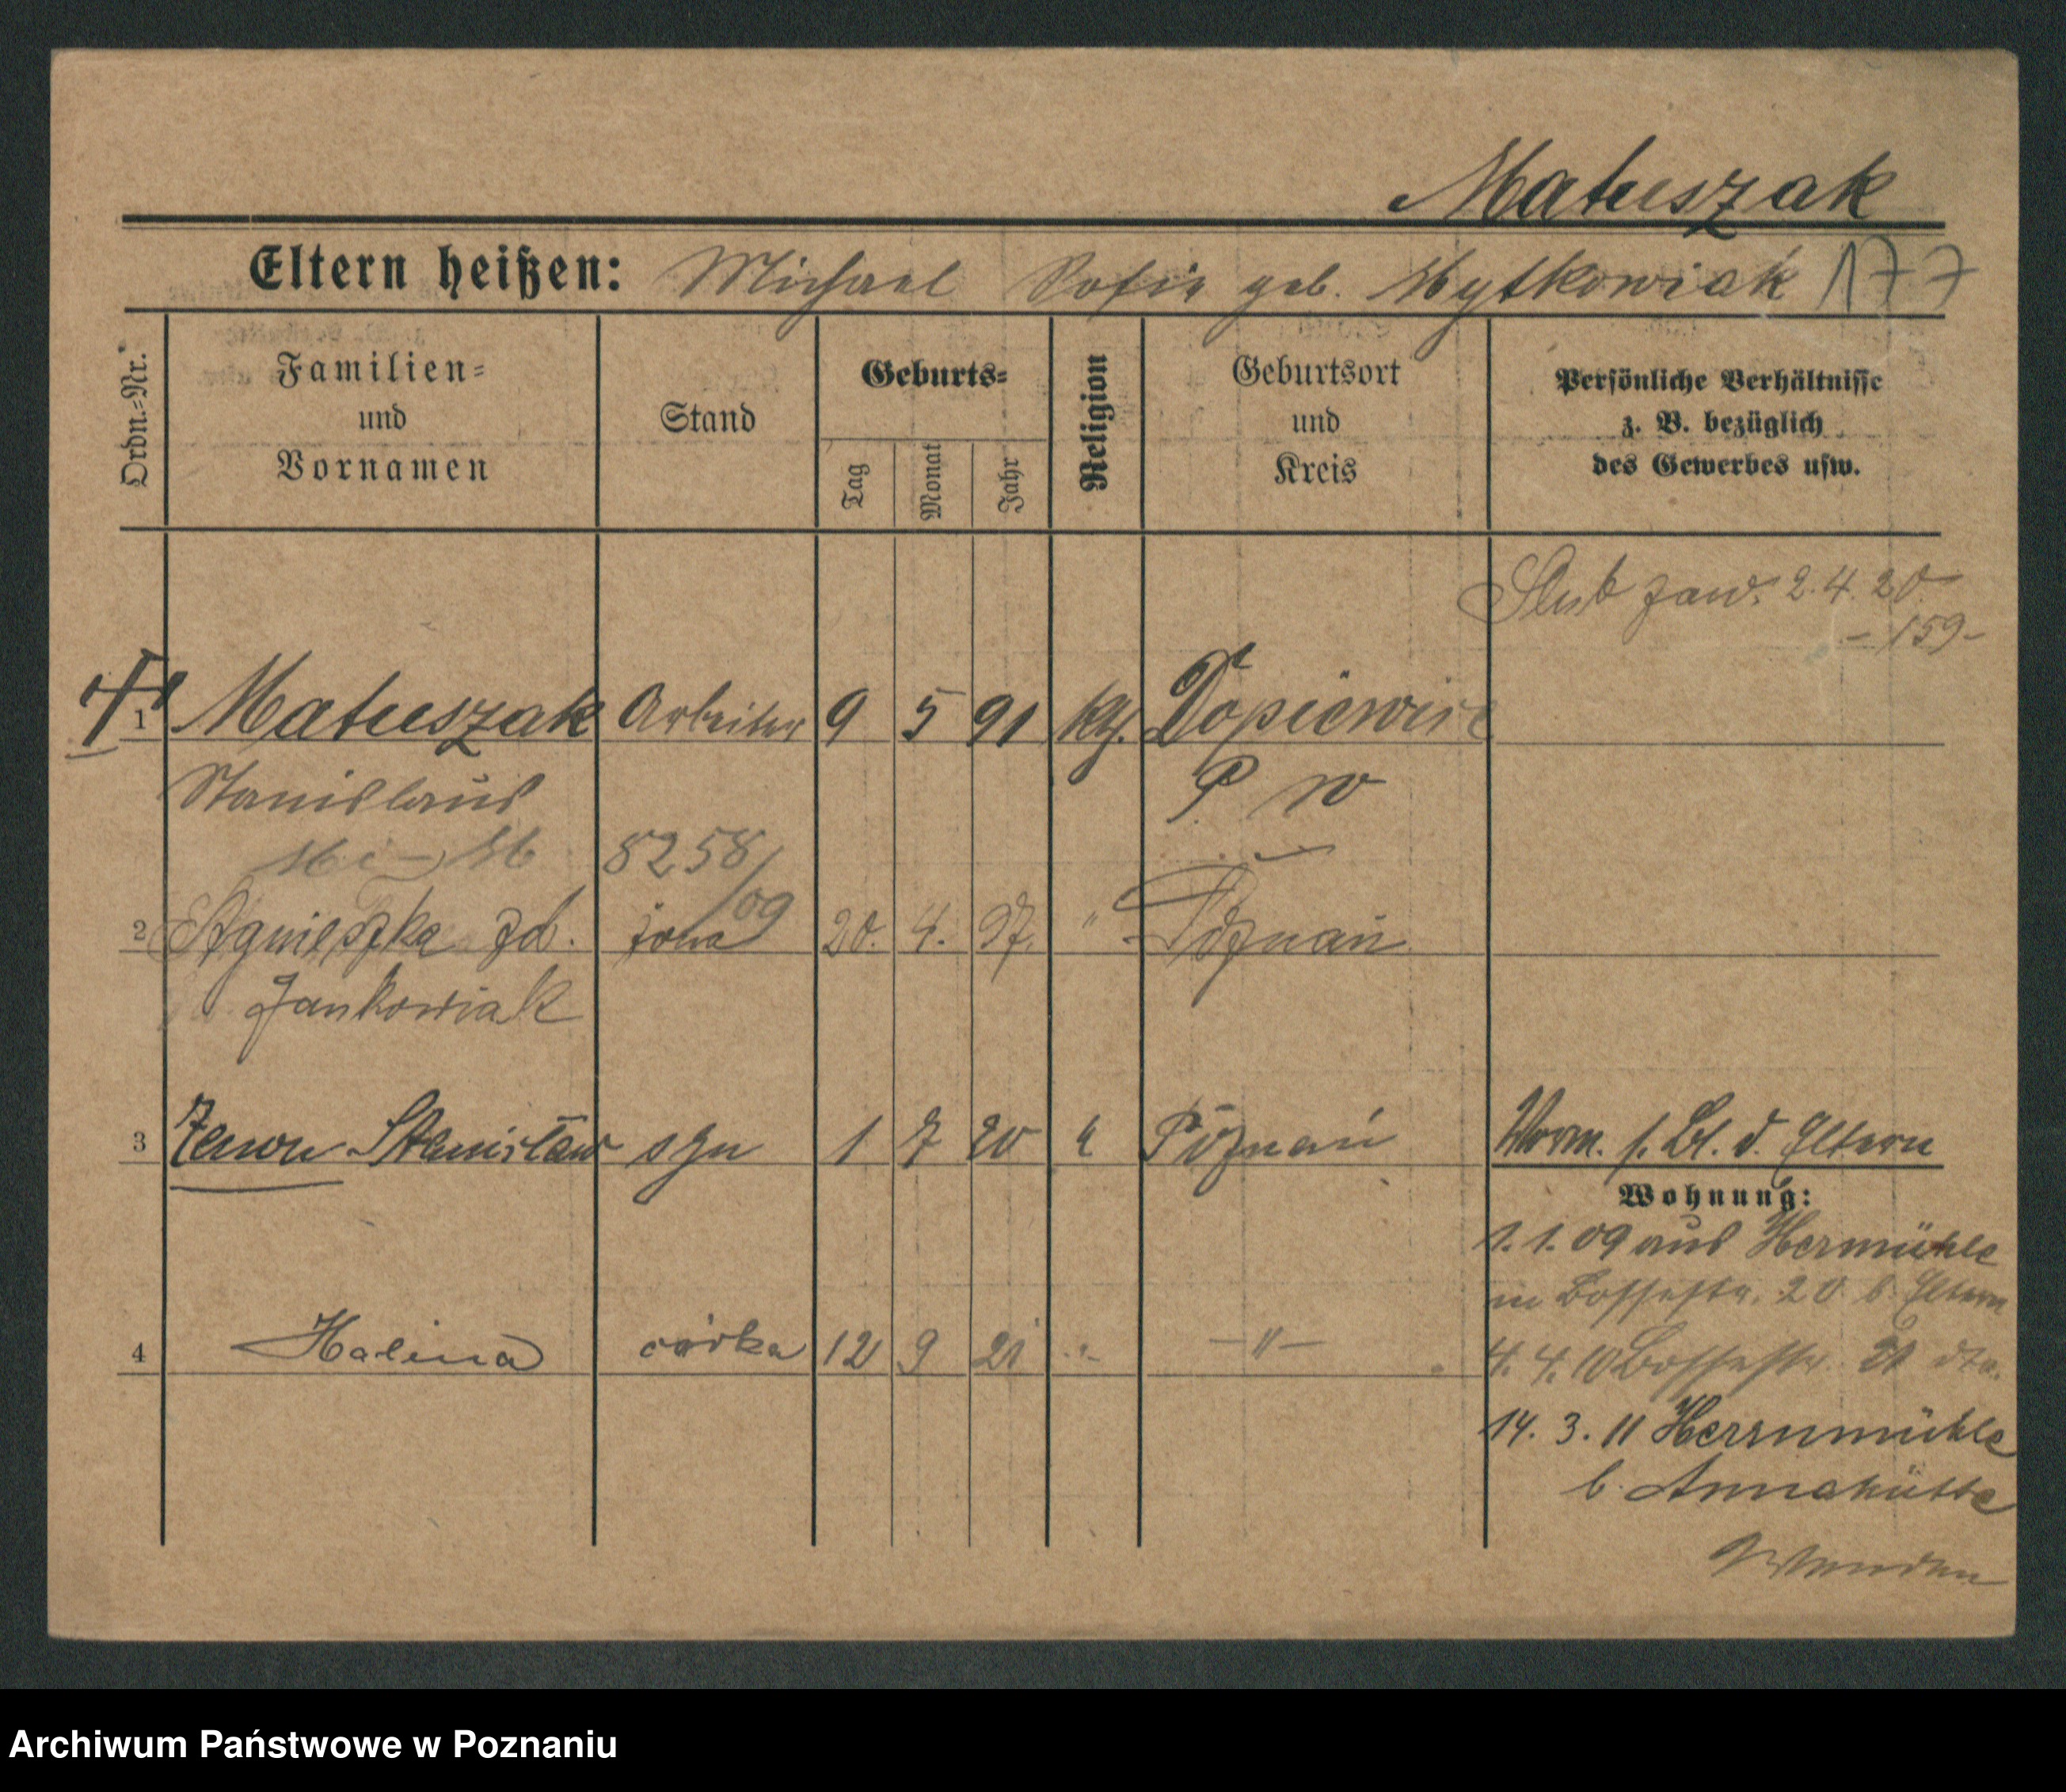 Matuszak
Eltern heißen: Michael Sofie geb. Mytkowiak 177
Ordn.-Nr.
Familien-
und
Vornamen
Stand
Geburts-
Tag
Monat
Jahr
Religion
Geburtsort
und
Kreis
Persönliche Verhältnisse
z. B. bezüglich
des Gewerbes usw.
Ślub zaw. 2.4.20.
- 159 -
1 Matuszak Arbeiter 9 5 91 kth. Dopiewiec
Stanislaus P. W
8258/09
2 Agnieszka zd. żona 20. 4. 97. " Poznań
Jankowiak
3 Zenon Stanisław syn 1 7 20 k Poznań
Vorm. s. Bl. d. Eltern
Wohnung:
1.1.09 aus Hermühle
in Bossestr. 20 b. Eltern
4 Halina córka 12 9 21 -"- -"-
4.4.10 Bossestr. 21 dto.
14.3.11 Herrnmühle
b. Annahütte
Wenden
Archiwum Państwowe w Poznaniu